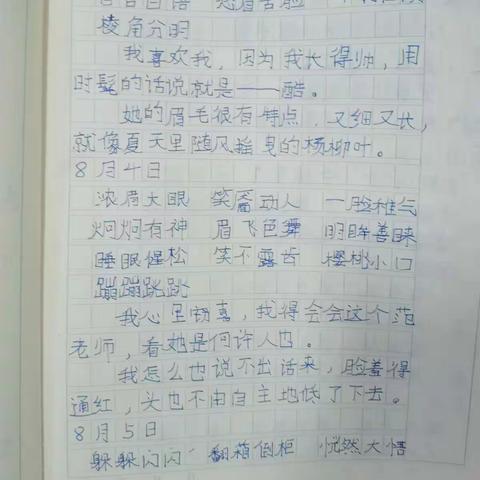 自言自语 愁眉苦脸
棱角分明
我喜欢我，因为我长得帅，用
时髦的话说就是——酷。
她的眉毛很有特点，又细又长，
就像夏天里随风摇曳的杨柳叶。
8月4日
浓眉大眼 笑靥动人 一脸稚气
炯炯有神 眉飞色舞 明眸善睐
睡眼惺松 笑不露齿 樱桃小口
蹦蹦跳跳
我心里窃喜，我得会会这个范
老师，看她是何许人也。
我怎么也说不出话来，脸羞得
通红，头也不由自主地低了下去。
8月5日
躲躲闪闪 翻箱倒柜 恍然大悟